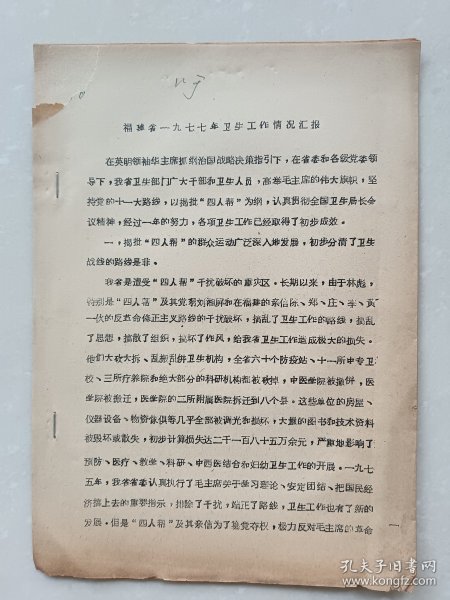 福建省一九七七年卫生工作情况汇报
在英明领袖华主席抓纲治国战略决策指引下，在省委和各级党委领
导下，我省卫生部门广大干部和卫生人员，高举毛主席的伟大旗帜，坚
持党的十一大路线，以揭批“四人帮”为纲，认真贯彻全国卫生局长会
议精神，经过一年的努力，各项卫生工作已经取得了初步成效。
一，揭批“四人帮”的群众运动广泛深入地发展，初步分清了卫生
战线的路线是非。
我省是遭受“四人帮”干扰破坏的重灾区。长期以来，由于林彪，
特别是“四人帮”及其党羽刘湘屏和在福建的亲信陈、郑、庄、李、黄
一伙的反革命修正主义路线的干扰破坏，搞乱了卫生工作的路线，搞乱
了思想，搞散了组织，搞坏了作风，给我省卫生工作造成极大的损失。
他们大砍大拆、乱拆乱併卫生机构，全省六十个防疫站、十一所中专卫
校、三所疗养院和绝大部分的科研机构都被砍掉，中医学院被撤併，医
学院被搬迁，医学院的二所附属医院拆迁到八个县。这些单位的房屋、
仪器设备、物资傢俱等几乎全部被调光和损坏，大量的图书和技术资料
被毁坏或散失，初步计算损失达二千一百八十五万余元，严重地影响了
预防、医疗、教学、科研、中西医结合和妇幼卫生工作的开展。一九七
五年，我省省委认真执行了毛主席关于学习理论、安定团结、把国民经
济搞上去的重要指示，排除了干扰，端正了路线，卫生工作也有了新的
发展。但是“四人帮”及其亲信为了篡党夺权，极力反对毛主席的革命
孔夫子旧书网